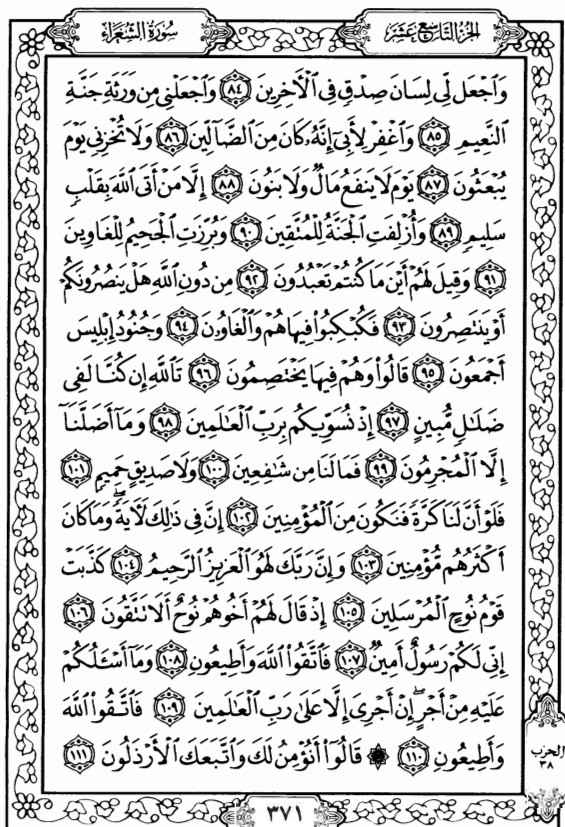 الجُزْءُ التَّاسِعَ عَشَرَ
سُورَةُ الشُّعَرَاءِ
وَٱجْعَل لِّى لِسَانَ صِدْقٍ فِى ٱلْـَٔاخِرِينَ ٨٤ وَٱجْعَلْنِى مِن وَرَثَةِ جَنَّةِ
ٱلنَّعِيمِ ٨٥ وَٱغْفِرْ لِأَبِىٓ إِنَّهُۥ كَانَ مِنَ ٱلضَّآلِّينَ ٨٦ وَلَا تُخْزِنِى يَوْمَ
يُبْعَثُونَ ٨٧ يَوْمَ لَا يَنفَعُ مَالٌ وَلَا بَنُونَ ٨٨ إِلَّا مَنْ أَتَى ٱللَّهَ بِقَلْبٍ
سَلِيمٍ ٨٩ وَأُزْلِفَتِ ٱلْجَنَّةُ لِلْمُتَّقِينَ ٩٠ وَبُرِّزَتِ ٱلْجَحِيمُ لِلْغَاوِينَ
٩١ وَقِيلَ لَهُمْ أَيْنَ مَا كُنتُمْ تَعْبُدُونَ ٩٢ مِن دُونِ ٱللَّهِ هَلْ يَنصُرُونَكُمْ
أَوْ يَنتَصِرُونَ ٩٣ فَكُبْكِبُوا۟ فِيهَا هُمْ وَٱلْغَاوُۥنَ ٩٤ وَجُنُودُ إِبْلِيسَ
أَجْمَعُونَ ٩٥ قَالُوا۟ وَهُمْ فِيهَا يَخْتَصِمُونَ ٩٦ تَٱللَّهِ إِن كُنَّا لَفِى
ضَلَـٰلٍ مُّبِينٍ ٩٧ إِذْ نُسَوِّيكُم بِرَبِّ ٱلْعَـٰلَمِينَ ٩٨ وَمَآ أَضَلَّنَآ
إِلَّا ٱلْمُجْرِمُونَ ٩٩ فَمَا لَنَا مِن شَـٰفِعِينَ ١٠٠ وَلَا صَدِيقٍ حَمِيمٍ ١٠١
فَلَوْ أَنَّ لَنَا كَرَّةً فَنَكُونَ مِنَ ٱلْمُؤْمِنِينَ ١٠٢ إِنَّ فِى ذَٰلِكَ لَـَٔايَةً ۖ وَمَا كَانَ
أَكْثَرُهُم مُّؤْمِنِينَ ١٠٣ وَإِنَّ رَبَّكَ لَهُوَ ٱلْعَزِيزُ ٱلرَّحِيمُ ١٠٤ كَذَّبَتْ
قَوْمُ نُوحٍ ٱلْمُرْسَلِينَ ١٠٥ إِذْ قَالَ لَهُمْ أَخُوهُمْ نُوحٌ أَلَا تَتَّقُونَ ١٠٦
إِنِّى لَكُمْ رَسُولٌ أَمِينٌ ١٠٧ فَٱتَّقُوا۟ ٱللَّهَ وَأَطِيعُونِ ١٠٨ وَمَآ أَسْـَٔلُكُمْ
عَلَيْهِ مِنْ أَجْرٍ ۖ إِنْ أَجْرِىَ إِلَّا عَلَىٰ رَبِّ ٱلْعَـٰلَمِينَ ١٠٩ فَٱتَّقُوا۟ ٱللَّهَ
وَأَطِيعُونِ ١١٠ ۞ قَالُوٓا۟ أَنُؤْمِنُ لَكَ وَٱتَّبَعَكَ ٱلْأَرْذَلُونَ ١١١
الحزب
٣٨
٣٧١